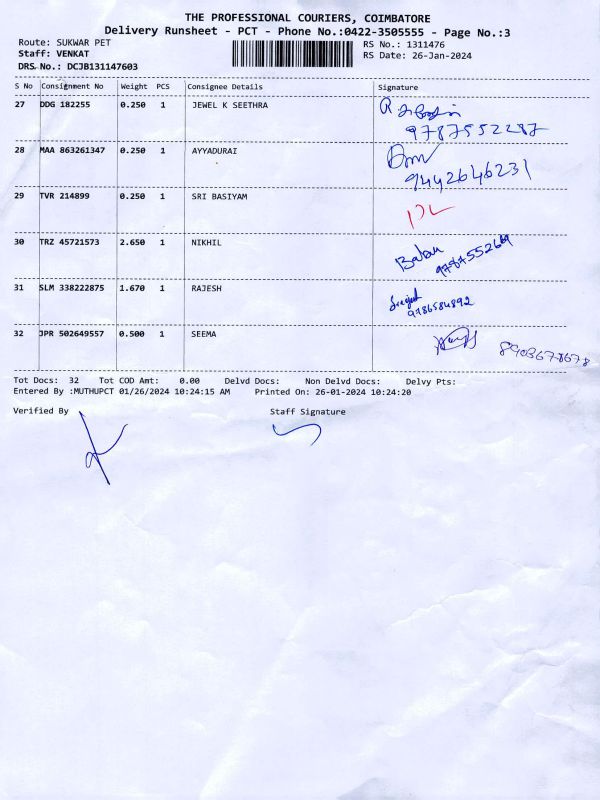 THE PROFESSIONAL COURIERS, COIMBATORE
Delivery Runsheet - PCT - Phone No.:0422-3505555 - Page No.:3
Route: SUKWAR PET RS No.: 1311476
Staff: VENKAT RS Date: 26-Jan-2024
DRS No.: DCJB131147603
S No Consignment No Weight PCS Consignee Details Signature
27 DDG 182255 0.250 1 JEWEL K SEETHRA
9787552287
28 MAA 863261347 0.250 1 AYYADURAI
9442646231
29 TVR 214899 0.250 1 SRI BASIYAM
30 TRZ 45721573 2.650 1 NIKHIL
Balan
31 SLM 338222875 1.670 1 RAJESH
9786584892
32 JPR 502649557 0.500 1 SEEMA
Tot Docs: 32 Tot COD Amt: 0.00 Delvd Docs: Non Delvd Docs: Delvy Pts:
Entered By :MUTHUPCT 01/26/2024 10:24:15 AM Printed On: 26-01-2024 10:24:20
Verified By Staff Signature